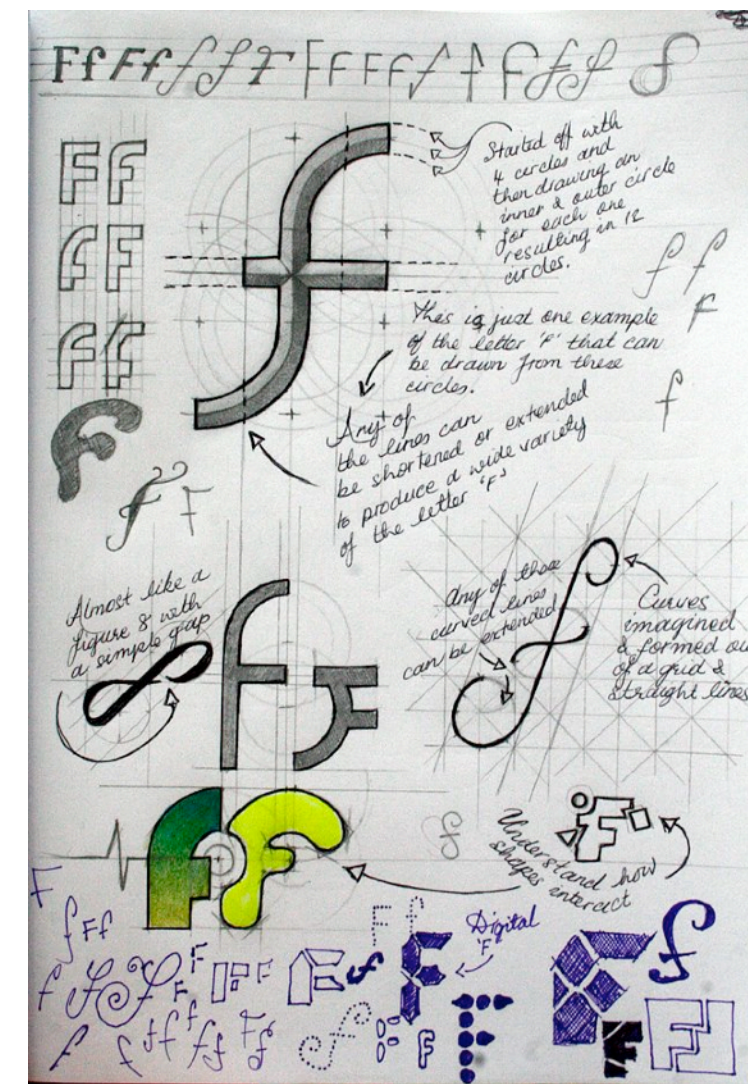 Ff Ff f f F F F F F f f F f f f
Started off with
4 circles and
then drawing an
inner & outer circle
for each one
resulting in 12
circles.
F f
f F
f F
This is just one example
of the letter 'F' that can
be drawn from these
circles.
Any of
the lines can
be shortened or extended
to produce a wide variety
of the letter 'F'
f f
F
f
f F
Almost like a
figure 8 with
a simple gap
any of those
curved lines
can be extended
Curves
imagined
& formed ou
of a grid &
straight lines
Understand how
shapes interact
Digital
'F'